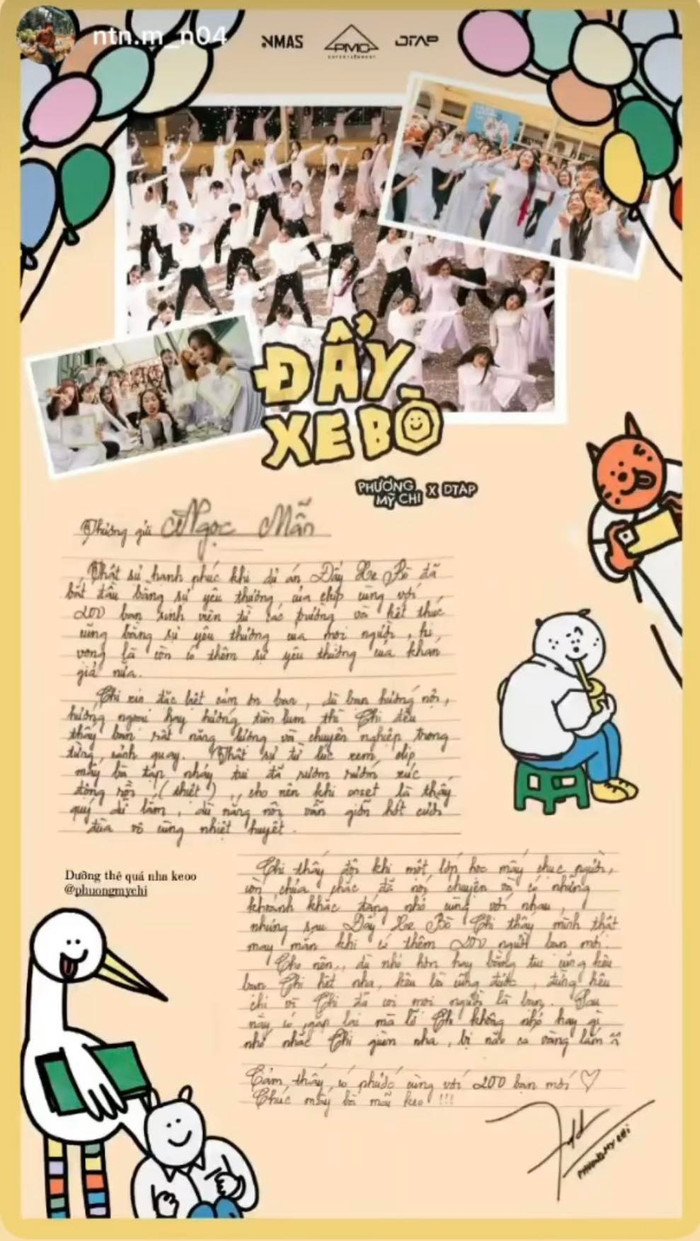 ntn.m_n04
NMAS
PMC
ENTERTAINMENT
DTAP
ĐẨY
XE BÒ
PHƯƠNG
MỸ CHI X DTAP
Thương gửi Ngọc Mẫn
Thật sự hạnh phúc khi dự án Đẩy Xe Bò đã
bắt đầu bằng sự yêu thương của ekip cùng với
200 bạn sinh viên từ các trường và kết thúc
cũng bằng sự yêu thương của mọi người, hi
vọng là còn có thêm sự yêu thương của khán
giả nữa.
Chi xin đặc biệt cảm ơn bạn, dù bạn hướng nội,
hướng ngoại hay hướng tùm lum thì Chi đều
thấy bạn rất năng lượng và chuyên nghiệp trong
từng cảnh quay. Thật sự từ lúc xem clip
mấy bà tập nhảy tui đã rươm rướm xúc
động rồi (thiệt), cho nên khi onset là thấy
quý dữ lắm, dù nắng nôi vẫn giỡn hớt cười
đùa vô cùng nhiệt huyết.
Dưỡng thê quá nha keoo
@phuongmychi
Chi thấy đôi khi một lớp học mấy chục người,
còn chưa chắc đã nói chuyện và có những
khoảnh khắc đáng nhớ cùng với nhau,
nhưng sau Đẩy Xe Bò Chi thấy mình thật
may mắn khi có thêm 200 người bạn mới.
Cho nên, dù nhỏ hơn hay bằng tui cũng kêu
bạn Chi hết nha, kêu bà cũng được, đừng kêu
chị vì Chi đã coi mọi người là bạn. Sau
này có gặp lại mà lỡ Chi không nhớ hay gì
nhớ nhắc Chi quen nha, bị não cá vàng lắm ^^
Cảm thấy có phước cùng với 200 bạn mới ♡
Chúc mấy bà mãi keo !!!
PHUONG MY CHI